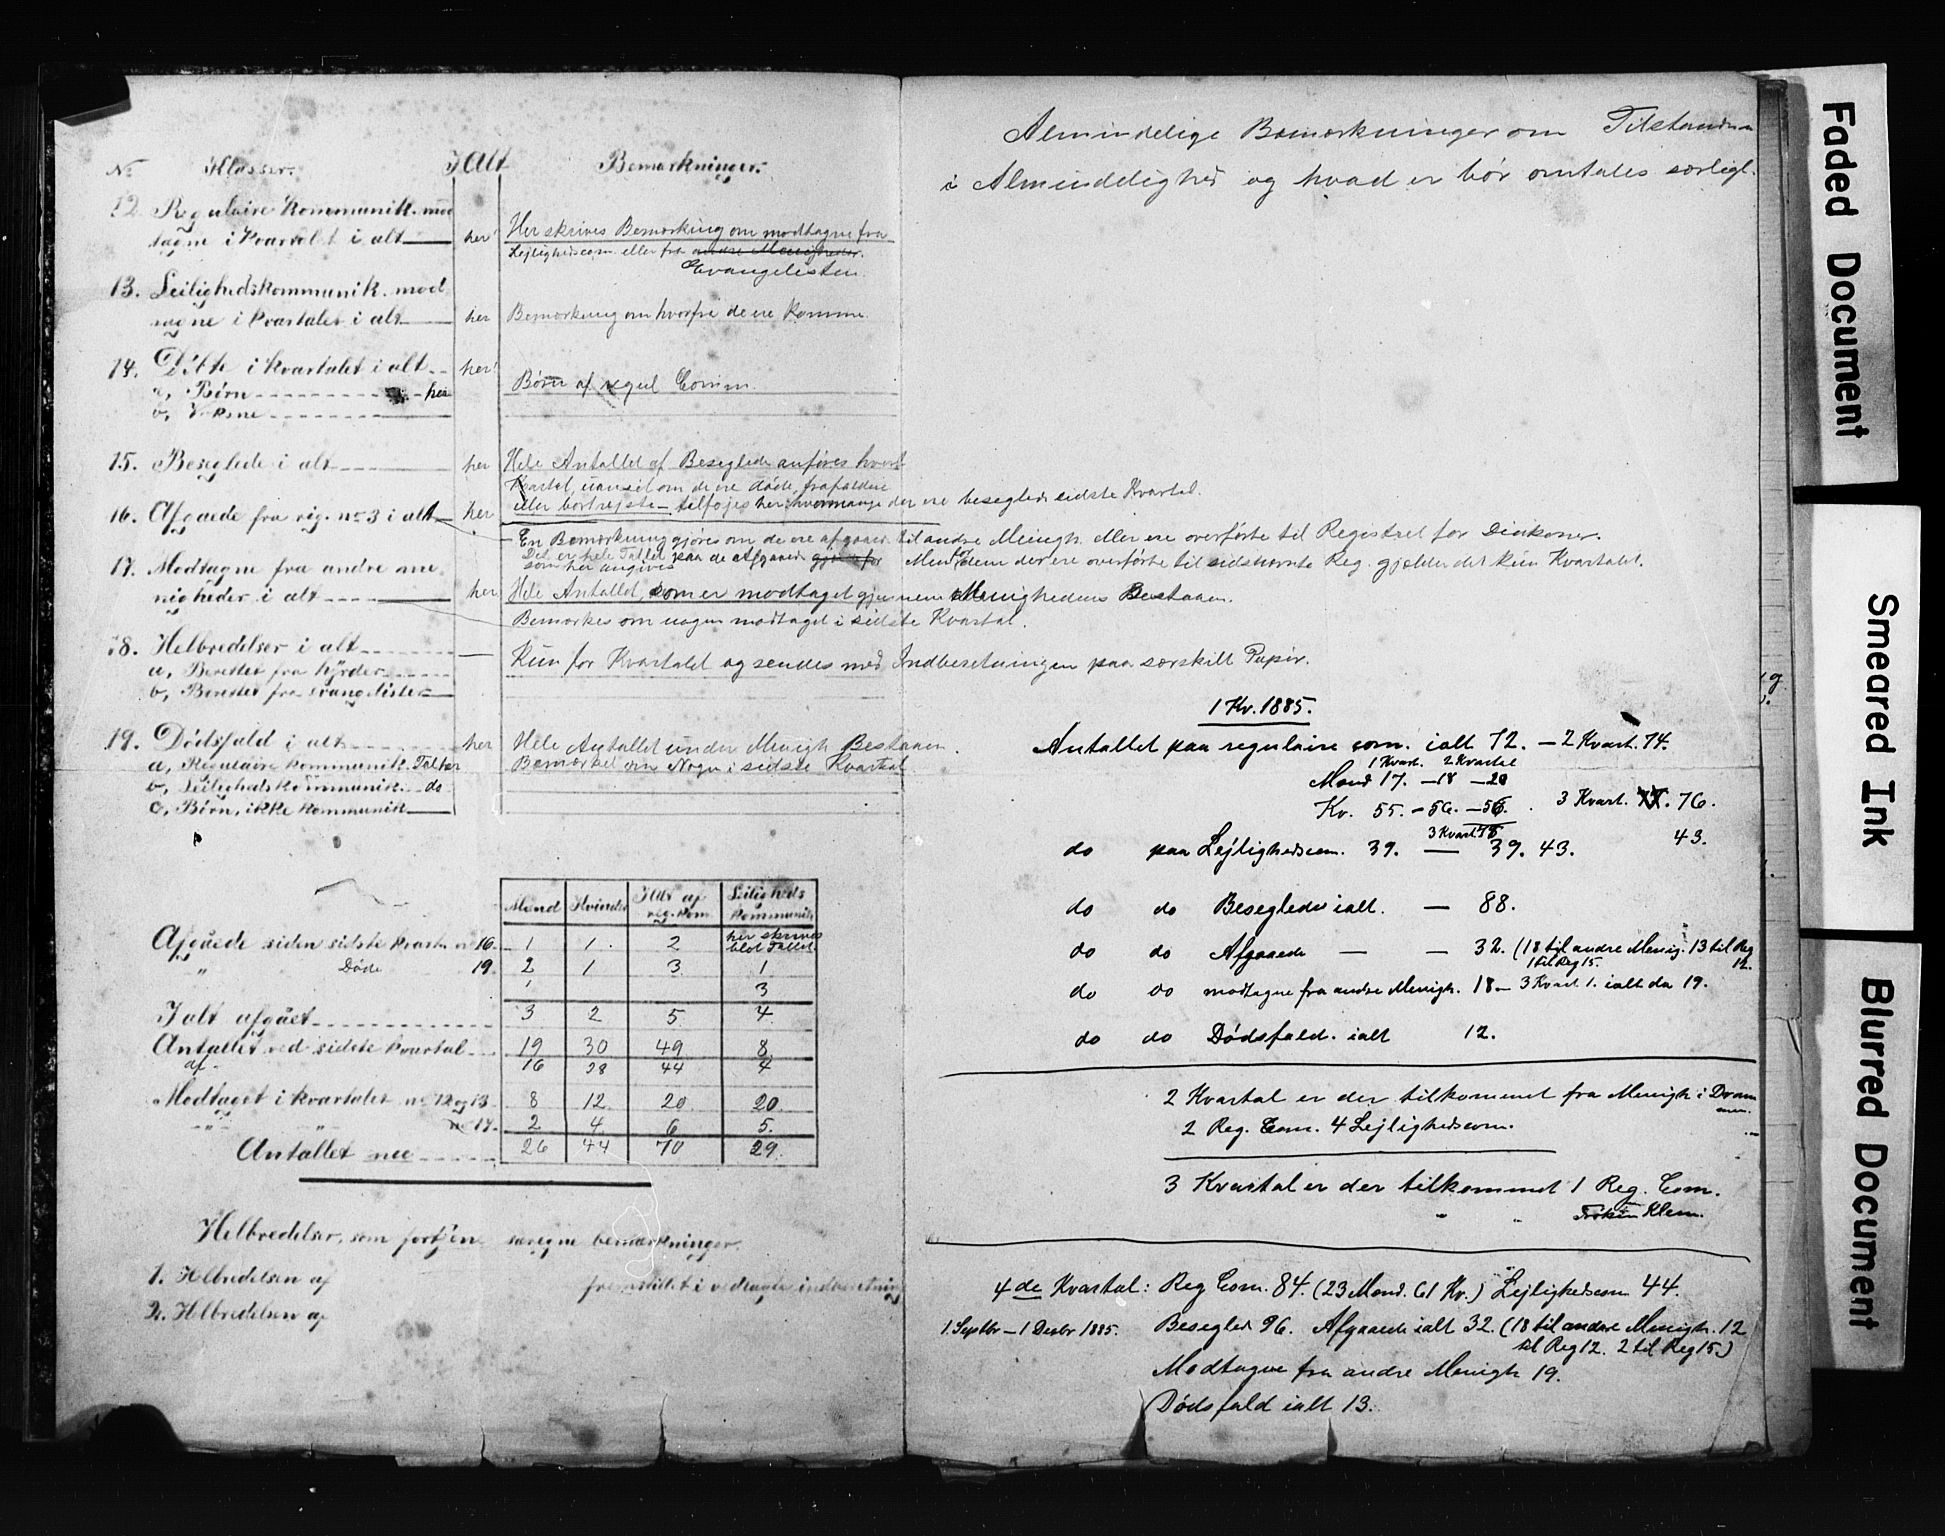 No Klasser. I Alt Bemærkninger.
12. Regulaire kommunik. mod
tagne i kvartalet i alt her Her skrives Bemærkning om modtagne fra
Lejlighedscom. eller fra andre Menigheder.
Evangelisten.
13. Leilighedskommunik. mod
tagne i kvartalet i alt her Bemærkning om hvorfra de ere komne.
14. Döbte i kvartalet i alt her
a, Børn her Børn af regul Comm.
b, Voksne
15. Beseglede i alt her Hele Antallet af Beseglede anføres hvert
Kvartal, uanset om de ere døde, frafaldne
eller bortrejste – tilføjes her hvormange der ere beseglede sidste Kvartal.
16. Afgaaede fra rig. no 3 i alt her
En Bemærkning gjøres om de ere afgaaede til andre Menigh. eller ere overførte til Registret for Diakoner.
Det er hele Tallet paa de Afgaaede Men for dem der ere overførte til sidstnævnte Reg. gjælder det kun Kvartalet.
som her angives
17. Modtagne fra andre me
nigheder i alt her Hele Antallet, som er modtaget gjennem Menighedens Bestaaen.
Bemærkes om nogen modtaget i sidste Kvartal.
18. Helbredelser i alt Kun for Kvartalet og sendes med Indberetningen paa særskilt Papir.
a, Berettet fra hyrder
b, Berettet fra evangelister
19. Dödsfald i alt her Hele Antallet under Menigh. Bestaaen.
a, Regulaire kommunik. Tallet Bemærket om Nogen i sidste Kvartal
b, Leilighedskommunik. do
c, Börn, ikke kommunik
Mænd Kvinder I Alt af reg. kom. Leiligheds kommunik
Afgåede siden sidste kvart. no 16. 1 1 2 her skrives blot Tallet.
" Döde 19. 2 1 3 1
3
I alt afgået 3 2 5 4
Antallet ved sidste kvartal 19 30 49 8
af. 16 28 44 4
Modtaget i kvartalet no 12 og 13 8 12 20 20
-"- " no 17. 2 4 6 5.
Antallet nu 26 44 70 29
Helbredelser, som fortjen særegne bemærkninger.
1. Helbredelsen af fremstillet i vedlagte indberetning
2. Helbredelsen af
Almindelige Bemærkninger om Tilstanden
i Almindelighed og hvad er bör omtales særligt.
1 Kv. 1885.
Antallet paa regulaire com. ialt 72. – 2 Kvart. 74.
1 Kvart. 2 Kvartal
Mænd 17. – 18 – 20
Kv. 55. – 56. – 56. 3 Kvart. 76.
3 Kvart. 75
do paa Lejlighedscom. 39. — 39. 43. 43.
do do Beseglede ialt. — 88.
do do Afgaaede — — 32. (18 til andre Menig. 13 til Reg
1 til Reg 15. 12.
do do modtagne fra andre Menigh. 18 – 3 Kvart 1. ialt da 19.
do do Dødsfald. ialt 12.
2 Kvartal er der tilkommet fra Menigh i Dram
men.
2 Reg. Com. 4 Lejlighedscom.
3 Kvartal er der tilkommet 1 Reg. Com.
Frøken Klem.
4de Kvartal: Reg Com. 84. (23 Mænd. 61 Kv.) Lejlighedscom 44.
1. Septbr – 1 Decbr 1885. Besegled 96. Afgaaede ialt 32. (18 til andre Menigh. 12
til Reg 12. 2 til Reg 15.)
Modtagne fra andre Menigh 19.
Dødsfald ialt 13.
Faded Document
Smeared Ink
Blurred Document